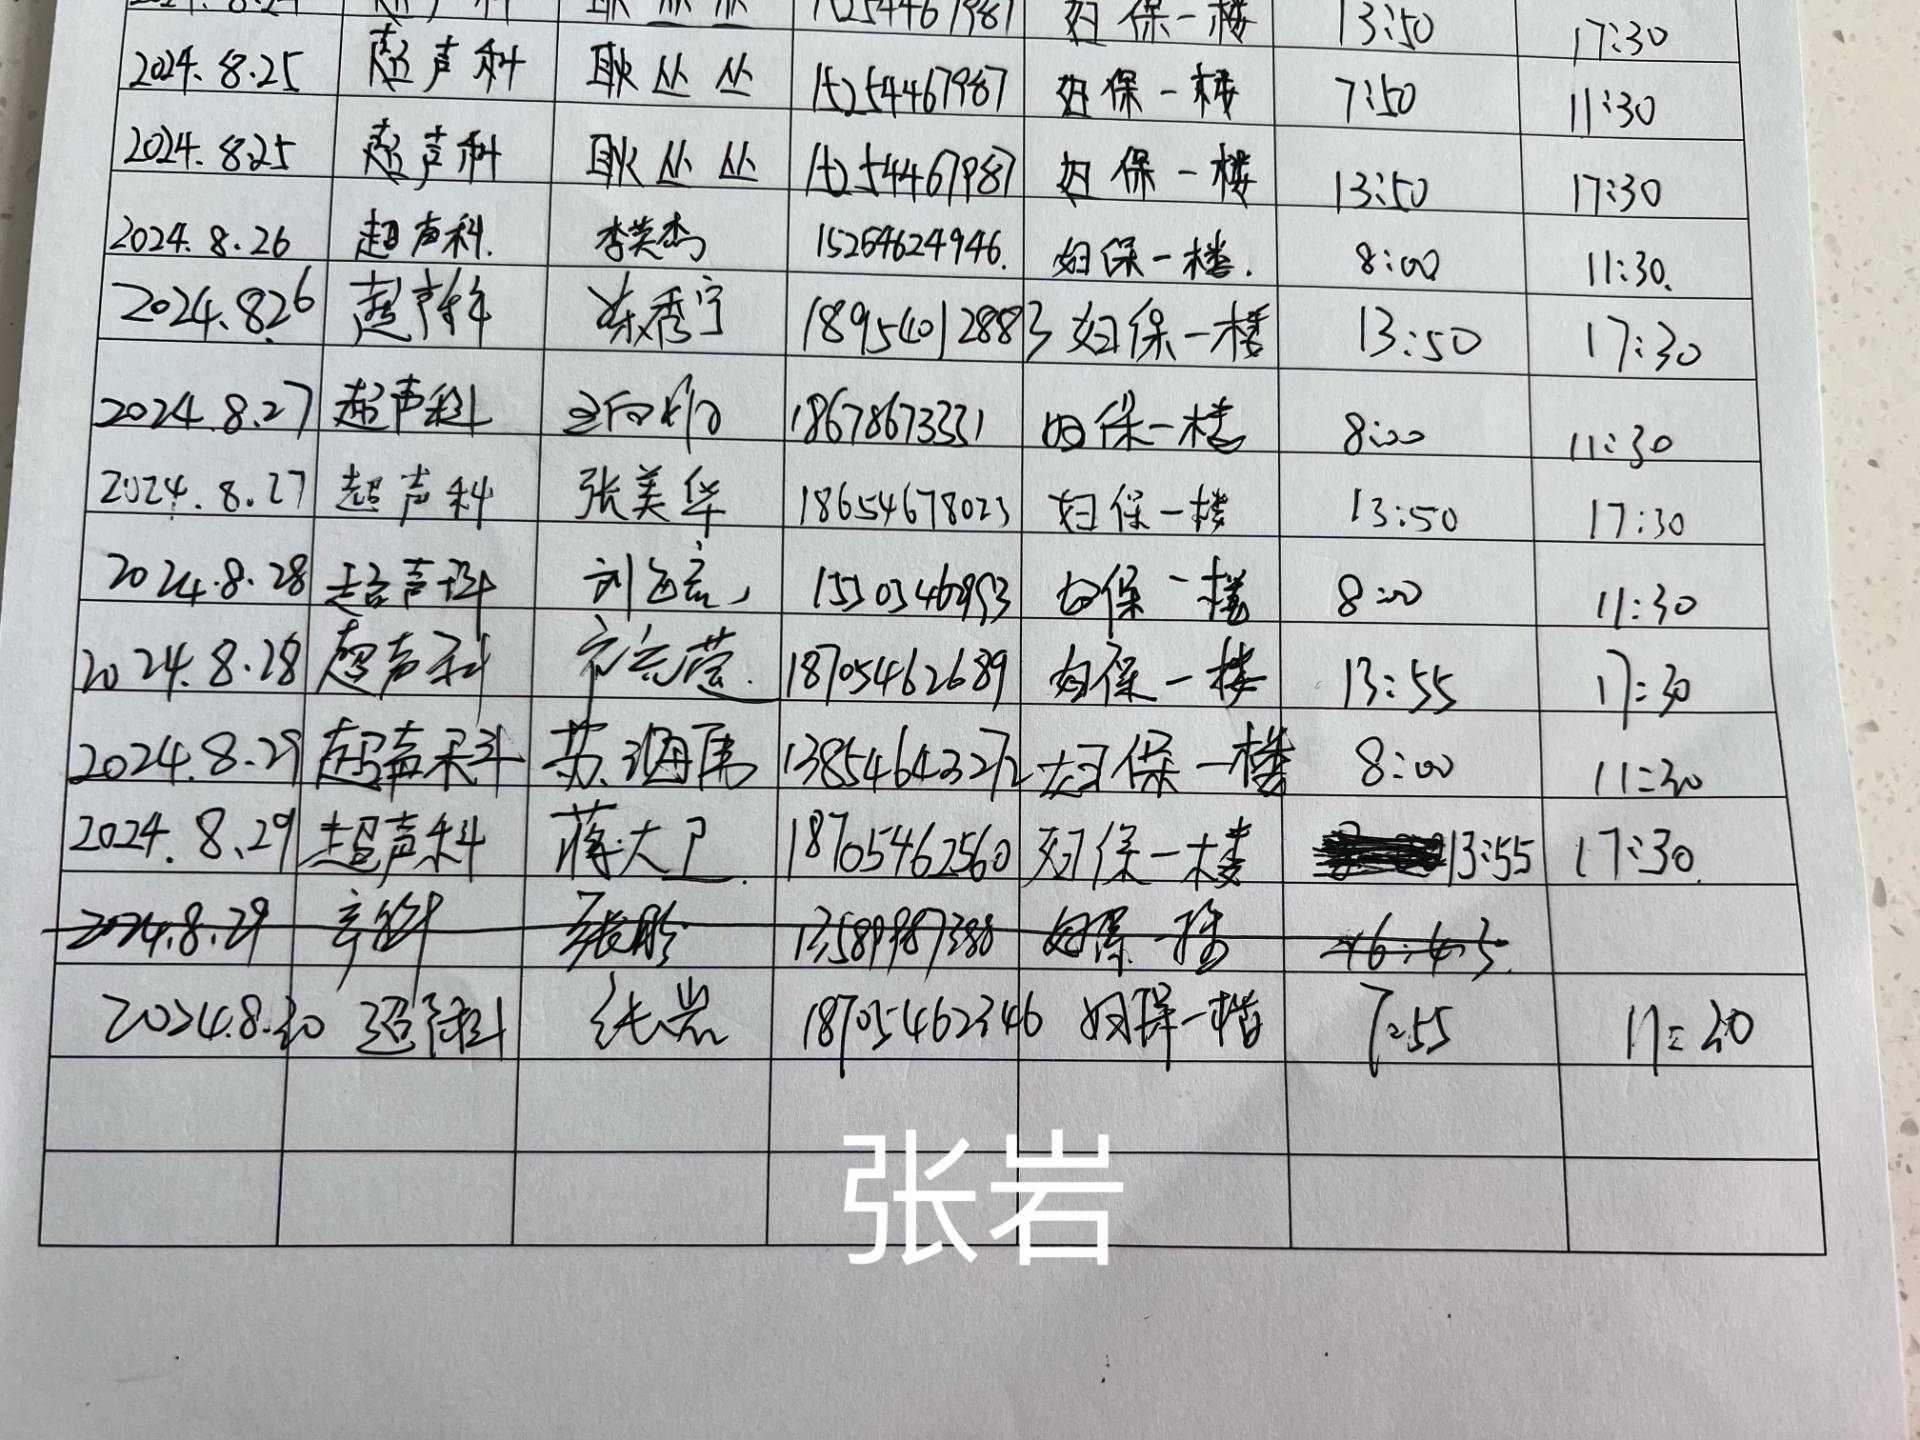 2024. 8.24 超声科 耿丛丛 15254467987 妇保一楼 13:50 17:30
2024. 8.25 超声科 耿丛丛 15254467987 妇保一楼 7:50 11:30
2024. 8.25 超声科 耿丛丛 15254467987 妇保一楼 13:50 17:30
2024. 8.26 超声科. 李英杰 15264624946. 妇保一楼. 8:00 11:30.
2024.8.26 超声科 秀宁 18954012883 妇保一楼 13:50 17:30
2024.8.27 超声科 18678673331 妇保一楼 8:00 11:30
2024.8.27 超声科 张美华 18654678023 妇保一楼 13:50 17:30
2024.8.28 超声科 刘 妇保一楼 8:00 11:30
2024.8.28 超声科 18705462689 妇保一楼 13:55 17:30
2024.8.29 超声科 苏海伟 13854643272 妇保一楼 8:00 11:30
2024.8.29 超声科 蒋大卫. 18705462560 妇保一楼 13:55 17:30.
2024.8.29 张 13589987388 妇保一楼 16:45.
2024.8.30 超声科 张岩 18705462346 妇保一楼 7:55 11:30
张岩